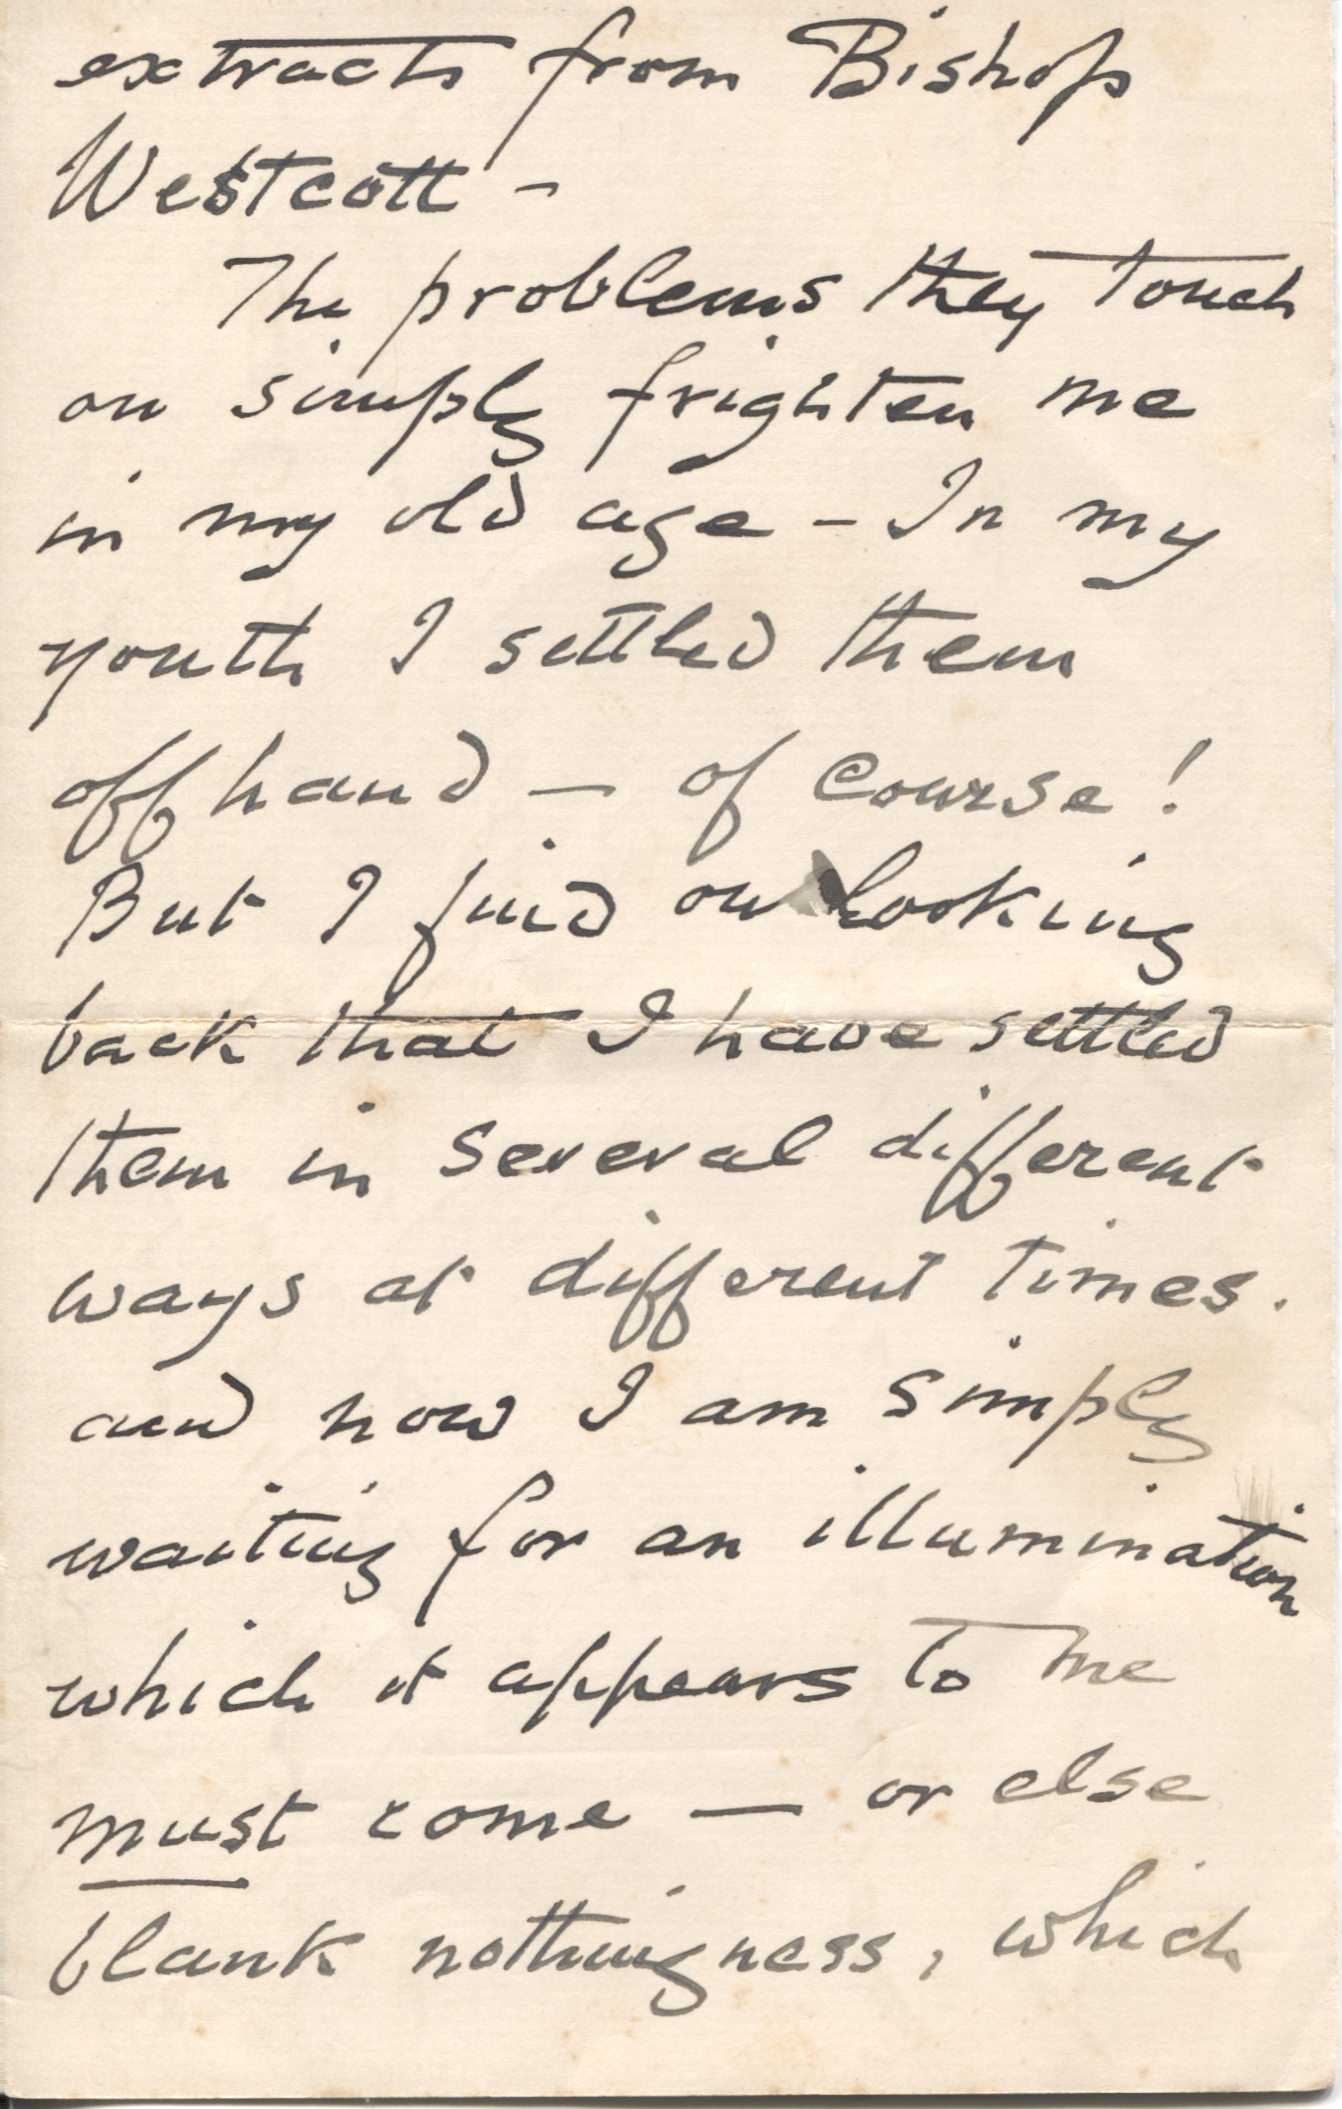 extracts from Bishop
Westcott –
The problems they touch
on simply frighten me
in my old age – In my
youth I settled them
off hand – of course!
But I find on looking
back that I have settled
them in several different
ways at different times.
and now I am simply
waiting for an illumination
which it appears to me
must come — or else
blank nothingness, which